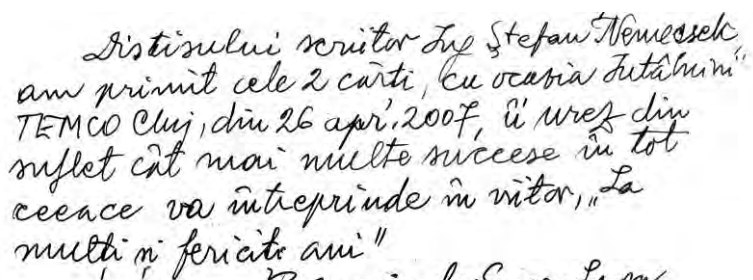 Distisului scriitor Ing Ștefan Nemecsek,
am primit cele 2 cărti, cu ocazia Întâlnirii
TEMCO Cluj, din 26 apr. 2007, îi urez din
suflet cât mai multe succese în tot
ceeace va întreprinde în viitor, „La
multi și fericiti ani"